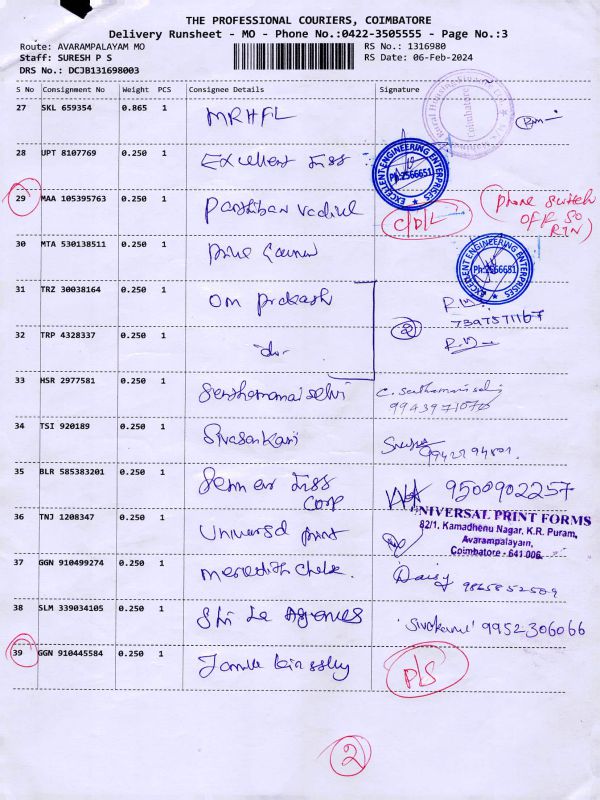 THE PROFESSIONAL COURIERS, COIMBATORE
Delivery Runsheet - MO - Phone No.:0422-3505555 - Page No.:3
Route: AVARAMPALAYAM MO
RS No.: 1316980
Staff: SURESH P S
RS Date: 06-Feb-2024
DRS No.: DCJB131698003
S No Consignment No Weight PCS Consignee Details Signature
27 SKL 659354 0.865 1 MRHFL
Coimbatore
28 UPT 8107769 0.250 1 Excellent Inss
EXCELLENT ENGINEERING ENTERPRISES
Ph:2566651
29 MAA 105395763 0.250 1 Parthiban Vadivel
C/D/L
(Phone switch
OFF SO
RTN)
30 MTA 530138511 0.250 1
EXCELLENT ENGINEERING ENTERPRISES
Ph:2566651
31 TRZ 30038164 0.250 1 Om prakash
7397571167
32 TRP 4328337 0.250 1 -do-
2
33 HSR 2977581 0.250 1 Senthamaraiselvi
9943971070
34 TSI 920189 0.250 1 Sivasankari
35 BLR 585383201 0.250 1 Inss
Corp
9500902257
36 TNJ 1208347 0.250 1 Universal print
UNIVERSAL PRINT FORMS
82/1, Kamadhenu Nagar, K.R. Puram,
Avarampalayam,
Coimbatore - 641 006.
37 GGN 910499274 0.250 1 Daisy
9865852509
38 SLM 339034105 0.250 1 Sri Agencies
9952306066
39 GGN 910445584 0.250 1
P/S
2